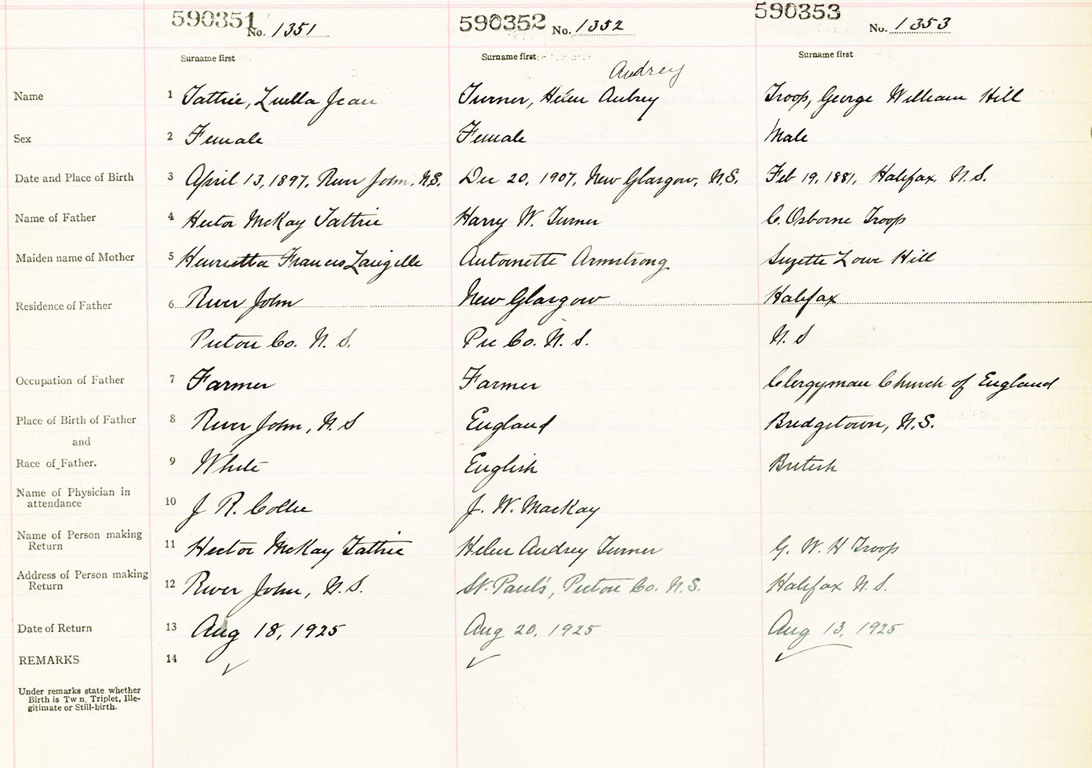 590351 No. 1351 590352 No. 1352 590353 No. 1353
Surname first Surname first Surname first
Audrey
Name 1 Tattrie, Luella Jean Turner, Helen Aubrey Troop, George William Hill
Sex 2 Female Female Male
Date and Place of Birth 3 April 13, 1897, River John, N.S. Dec 20, 1907, New Glasgow, N.S. Feb 19, 1881, Halifax N.S.
Name of Father 4 Hector McKay Tattrie Harry W. Turner C. Osborne Troop
Maiden name of Mother 5 Henrietta Frances Langille Antoinette Armstrong Suzette Lowe Hill
Residence of Father 6 River John New Glasgow Halifax
Pictou Co. N. S. Pic Co. N. S. N. S
Occupation of Father 7 Farmer Farmer Clergyman Church of England
Place of Birth of Father 8 River John, N.S England Bridgetown, N.S.
and
Race of Father. 9 White English British
Name of Physician in
attendance 10 J R. Collie J. W. MacKay
Name of Person making
Return 11 Hector McKay Tattrie Helen Audrey Turner G. W. H Troop
Address of Person making
Return 12 River John, N.S. St. Paul's, Pictou Co. N.S. Halifax N.S.
Date of Return 13 Aug 18, 1925 Aug 20, 1925 Aug 13, 1925
REMARKS 14
Under remarks state whether
Birth is Tw n, Triplet, Ille-
gitimate or Still-birth.